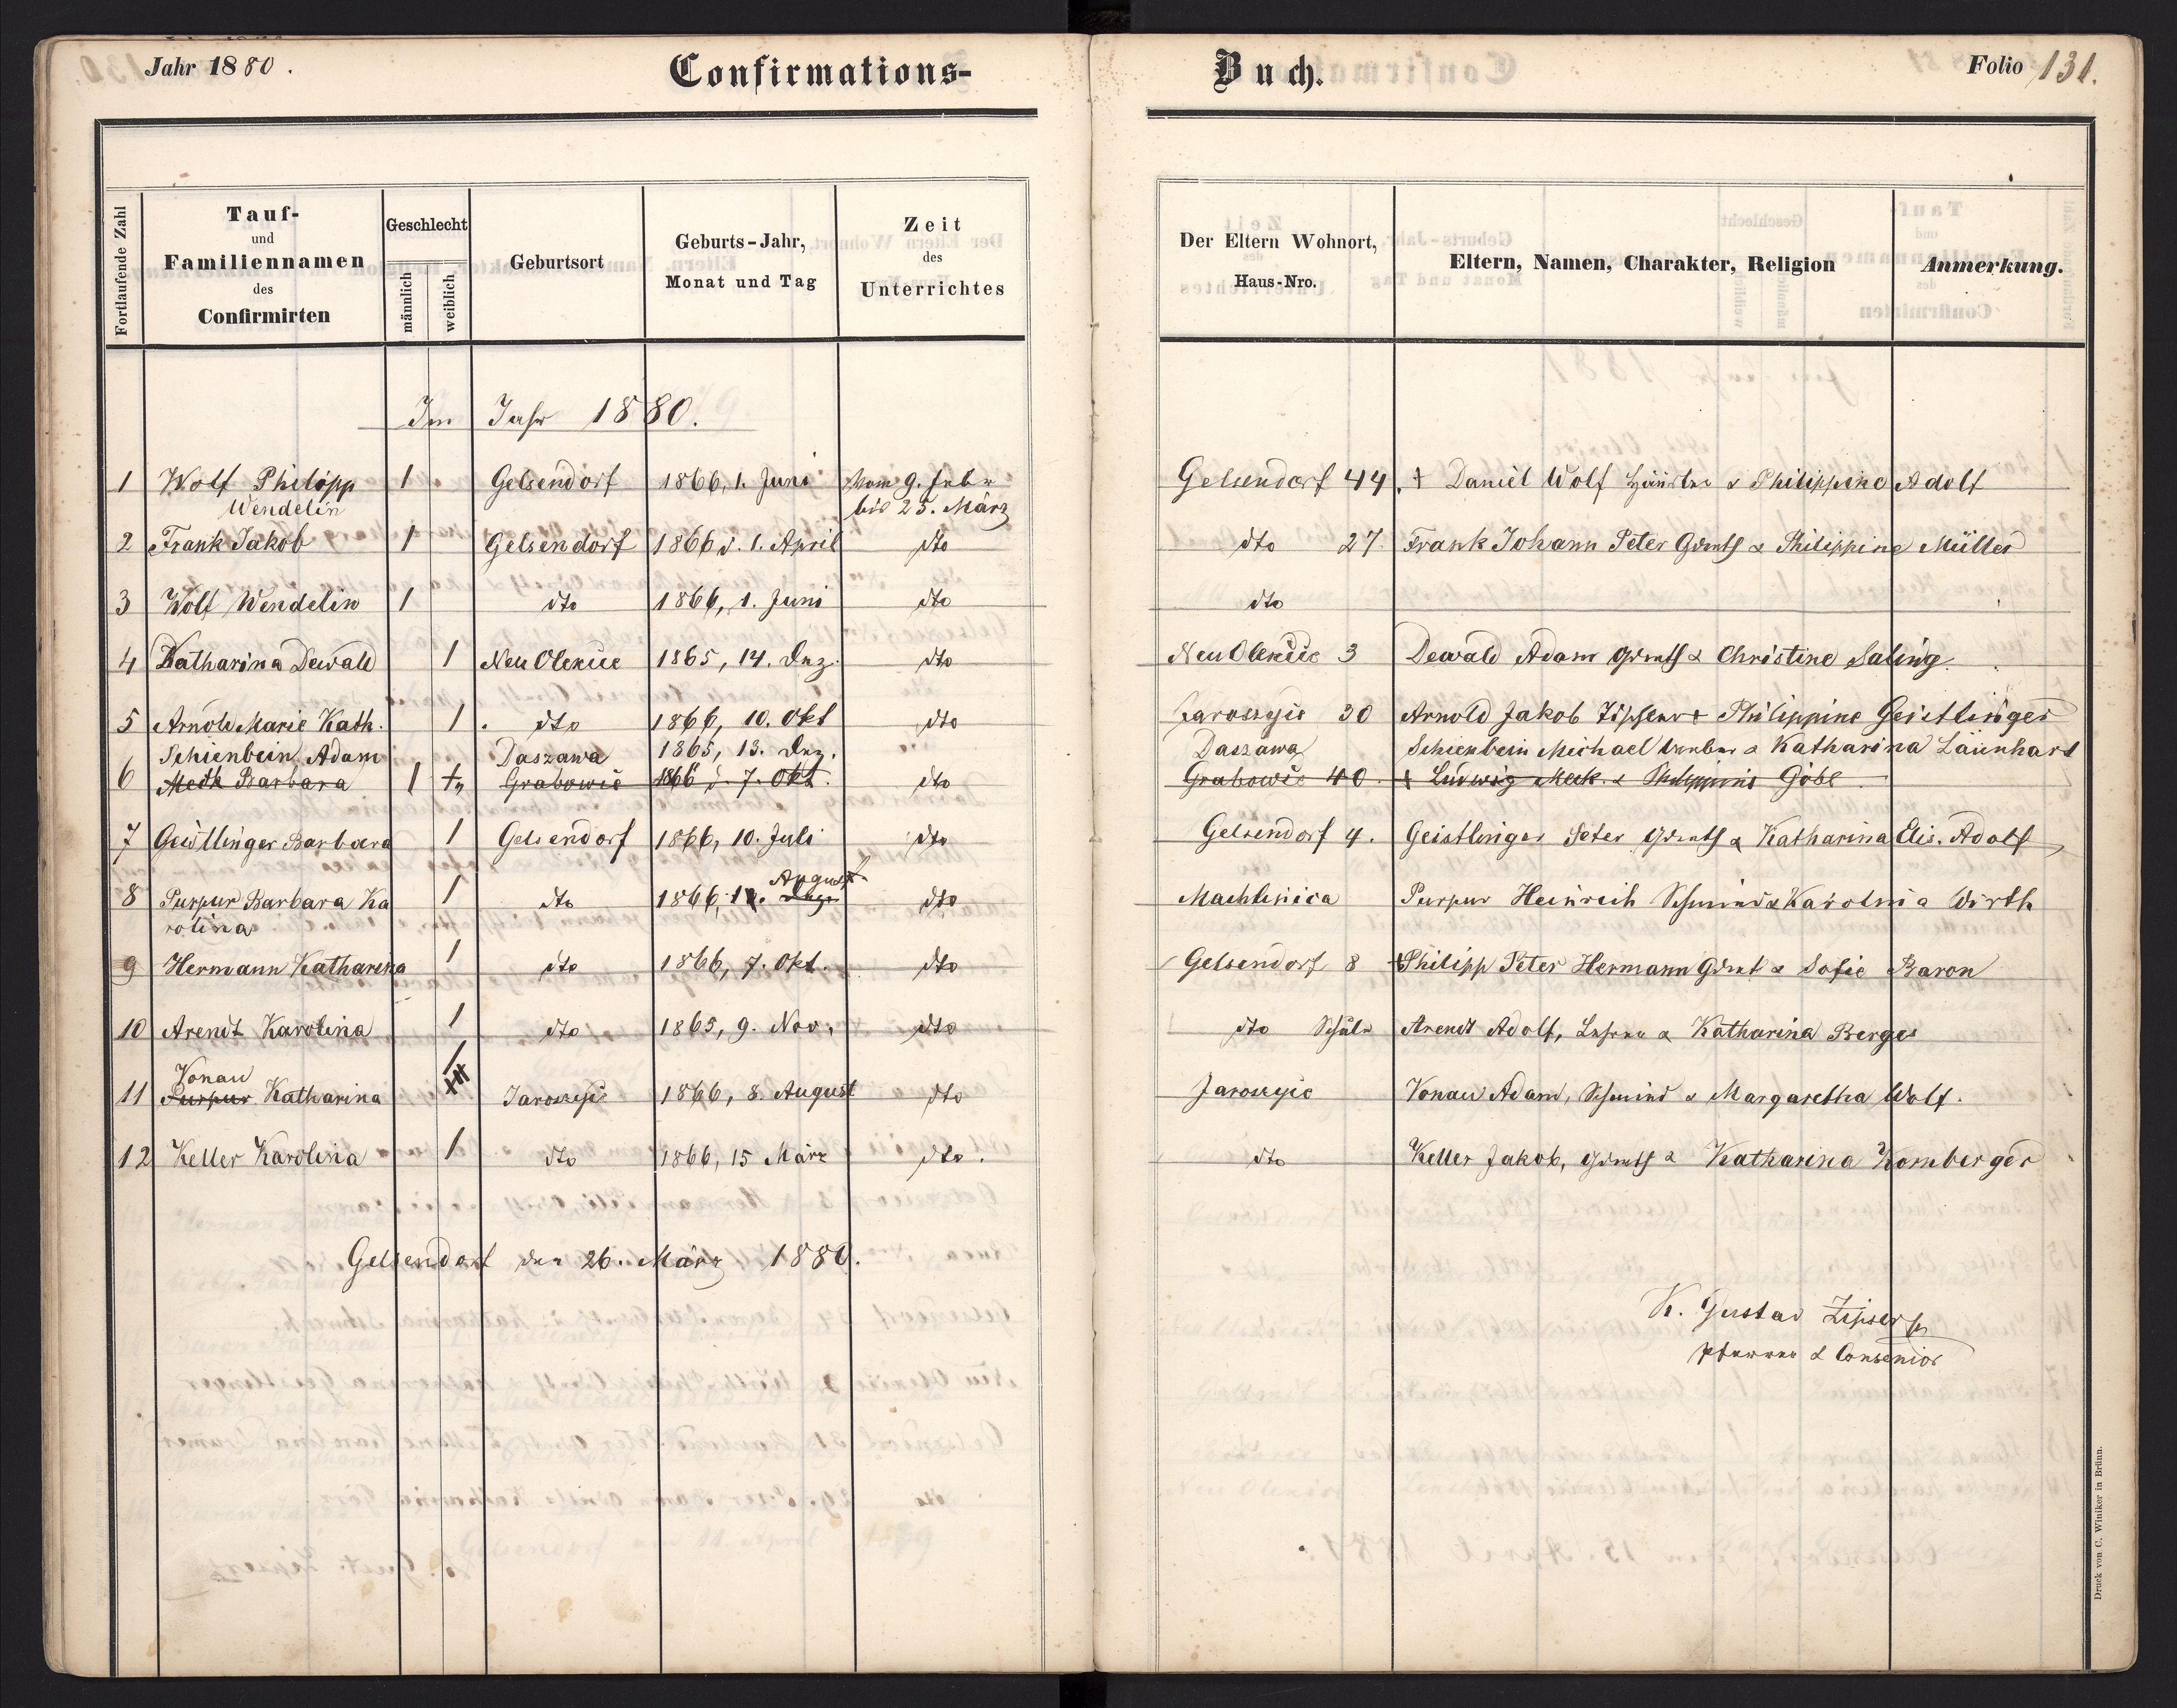 Jahr 1880.
Confirmations-
Buch.
Folio 131.
Fortlaufende Zahl
Tauf-
und
Familiennamen
des
Confirmirten
Geschlecht
männlich
weiblich
Geburtsort
Geburts-Jahr,
Monat und Tag
Zeit
des
Unterrichtes
Der Eltern Wohnort,
Haus-Nro.
Eltern, Namen, Charakter, Religion
Anmerkung.
Im Jahr 1880.
1 Wolf Philipp 1 Gelsendorf 1866, 1. Juni Vom 9. Febr Gelsendorf 44. + Daniel Wolf & Philippine Adolf
Wendelin bis 25. März
2 Frank Jakob 1 Gelsendorf 1866 d. 1. April dto dto 27. Frank Johann Peter Grundb & Philippine Müller
3 Wolf Wendelin 1 dto 1866, 1. Juni dto dto
4 Katharina Dewald 1 Neu Olexice 1865, 14. Dez. dto Neu Olexice 3 Dewald Adam Grundb & Christine Saling
5 Arnold Marie Kath. 1 dto 1866, 10. Okt dto Jaroszyce 30 Arnold Jakob & Philippine Geistlinger
Schienbein Adam Daszawa 1865, 13. Dez. Daszawa Schienbein Michael & Katharina Läunhart
6 Meck Barbara 1 Grabowic 1866 d. 7. Okt. dto Grabowic 40. + Ludwig Meck & Philippine Göbl
7 Geistlinger Barbara 1 Gelsendorf 1866, 10. Juli dto Gelsendorf 4. Geistlinger Peter Grundb & Katharina Elis. Adolf
August
8 Purpur Barbara Ka 1 dto 1866, 12. Dez. dto Machlinica Purpur Heinrich Schmied & Karolina Wirth
rolina
9 Hermann Katharina 1 dto 1866, 7. Okt. dto Gelsendorf 8 + Philipp Peter Hermann Grundb & Sofie Baron
10 Arendt Karolina 1 dto 1865, 9. Nov. dto dto Schule Arendt Adolf, Lehrer & Katharina Berger
Vonau
11 Purpur Katharina 1 Jaroszyce 1866, 8. August dto Jaroszyce Vonau Adam, Schmied & Margaretha Wolf.
12 Keller Karolina 1 dto 1866, 15 März dto. dto Keller Jakob, Grundb & Katharina Komberger
Gelsendorf den 26. März 1880.
K. Gustav Zipser
Pfarrer & Consenior
Druck von C. Winiker in Brünn.